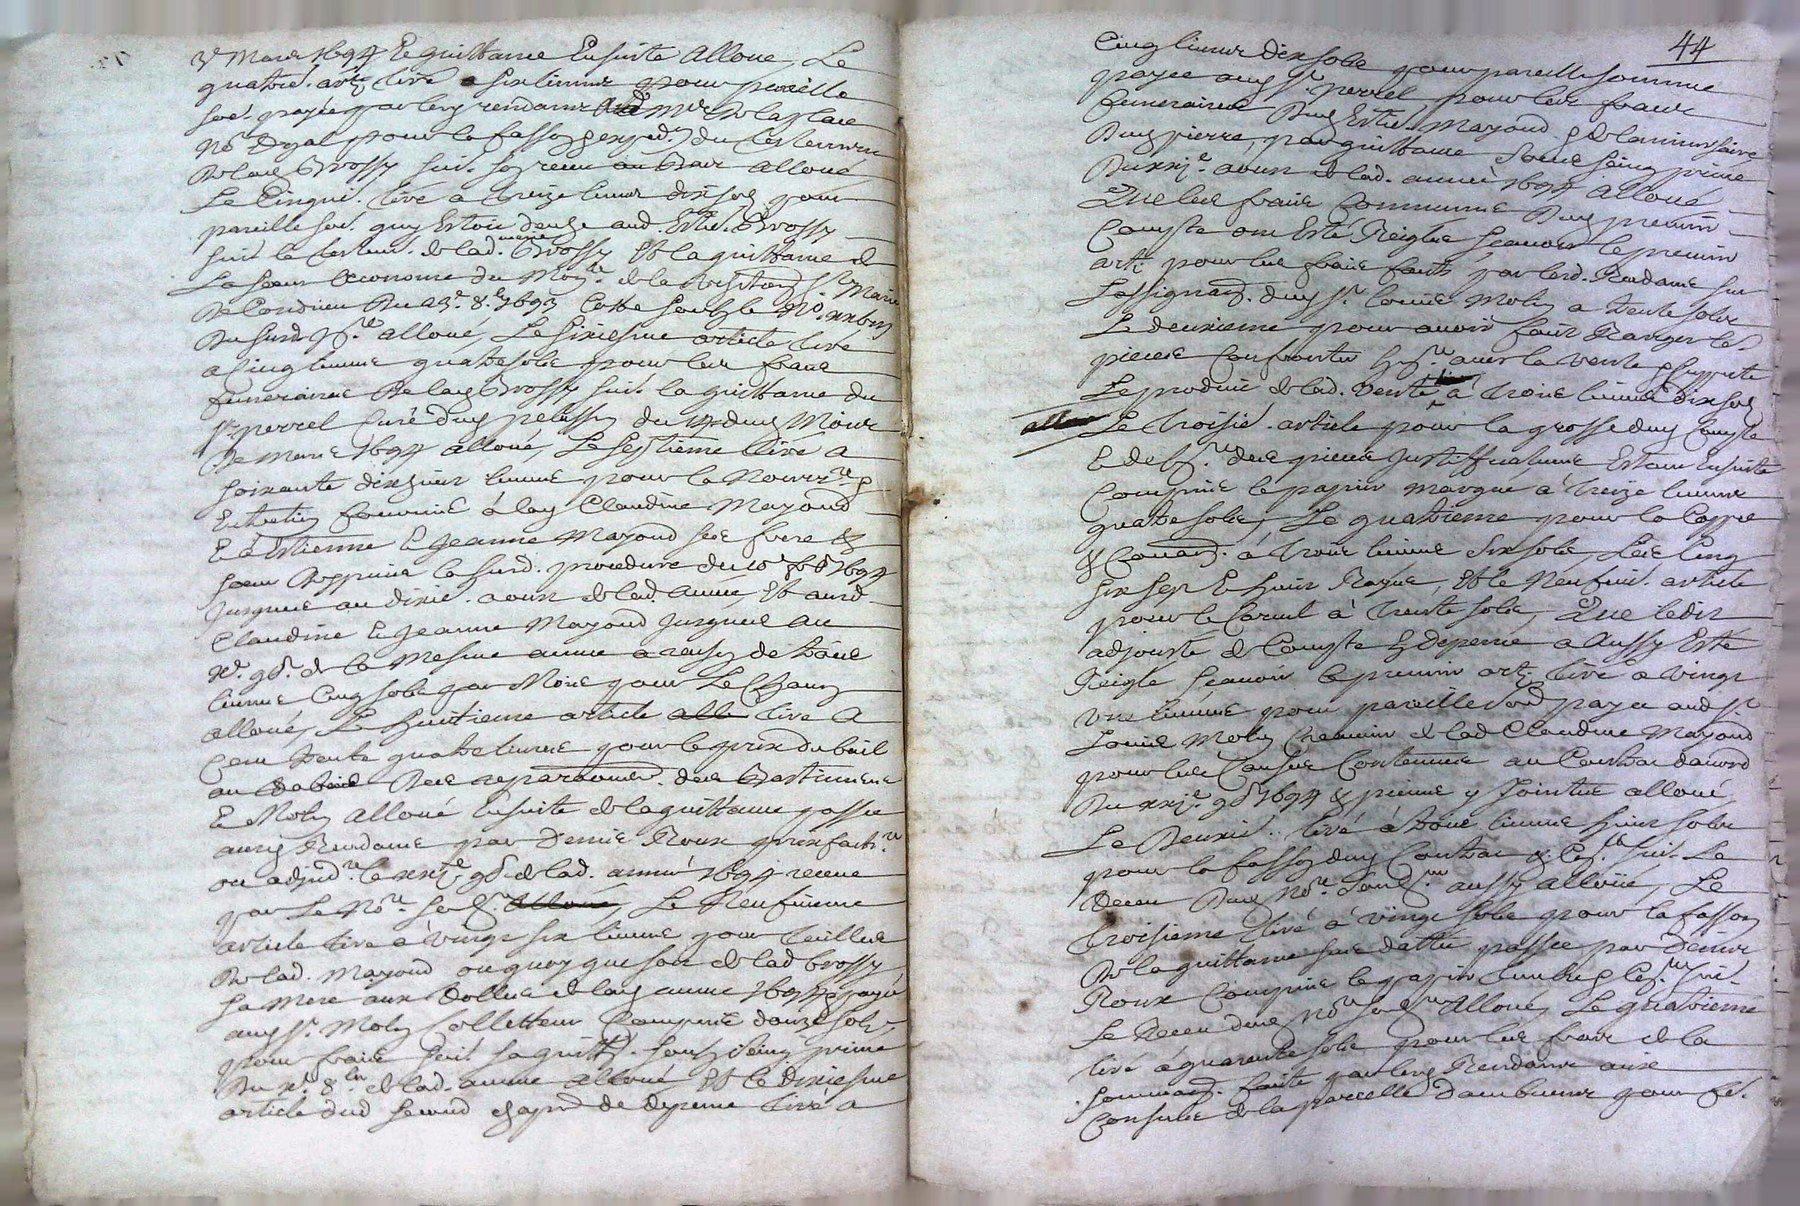 3e Mars 1694 Et quittance Ensuite Alloué, Le
quatrié. artˡᵉ tiré a six livres pour pareille
so͠e. payée par led rendant a Mᵉ Delaglace
noʳᵉ Royal pour la fasson & expedᵒⁿ du Testament
De lad Brossy suiᵗ. son receu au bas alloué
Le Cinqui. tiré a treize livres dix sols pour
pareille so͠e. quy Estoit deuhe aud. Estie. Brossy
suiᵗ le testamᵗ. de lad. marie Brossy Et la quittance de
La soeur Oeconome du Monʳᵉ. de la visitaon Sᵗᵉ Marie
De Condrieu Du 23ᵉ 8ʳᵉ 1693 Cotté soubz le No. xxbııj
alloué, Le sixiesme article tiré
a cinq livres quatre sols pour les frais
funeraires De lad Brossy suiᵗ. la quittance du
Sʳ perrel Curé dud pelussin du 14 dud Mois
De mars 1694 alloué, Le septieme tiré a
soixante dix huit livres pour la Nourrʳᵉ &
Entretien fournie a lad Claudine Mayoud
Et a Estienne Et Jeanne Mayoud ses frere &
soeur procedure du 10ᵉ 1694
Jusques au dixie. aoust de lad. année, Et ausd
Claudine Et Jeanne Mayoud Jusques au
xᵉ. 9bʳᵉ. de la Mesme année a raison de trois
livres cinq sols par Mois pour Le Chacun
alloué, Le huitieme article all tiré a
Cent trente quatre livres pour le prix du bail
au rabais Des reparaons des Bastiments
Et Molin alloué Ensuite de la quittance passée
aud Rendant par Denis Roux prixfaitʳᵉ
ou adjudʳᵉ. le xxjᵉ. 9bʳᵉ de lad. année 1694 receue
par Le Noʳᵉ. soubzᵉ alloué, Le Neufvieme
article tiré a vingt six livres pour tailles
De lad. Mayoud ou quoy que soit de lad brossy
sa Mere aux Rolles de lad année 1694 payé
aud Sʳ. Molin Collecteur Compris douze sols
pour frais suiᵗ sa quittᶜᵉ. soubz seing privé
Du xᵉ. 8ᵇʳᵉ de lad. année alloué Et le dixiesme
article dud second chapᵉ de depense tiré a
44
Cinq livres dix sols pour pareille somme
payée aud Sʳ. perrel pour les frais
funeraires Dud Estie. Mayoud & de lanniversaire
Dud pierre, par quittance soubs seing privé
Du xxjᵉ. aoust de lad. année 1694 alloué
Que les frais Communs Dud present
Compte ont Esté Reiglés sçavoir le premier
arti. pour les frais faits par led. Rendant sur
Lassignaon. dud Sʳ. Louis Molin a trente sols
Le deuxieme pour avoir fait Ranger les
pieces avec la vente &
Le produit de lad. vente a trois livres dix sols
alloué
Le troisié. article pour la grosse dud Compte
Et des pieces Justifficatives Estant Ensuite
Compris le papier marqué a treize livres
quatre sols, Le quatrieme pour la Coppie
& a trois livres six sols, Les Cinq
six sept Et huit Rayés, Et le Neufvié. article
pour le Conseil a trente sols, Que ledit
adjousté de Compte & depense a Aussy Esté
Reiglé sçavoir le premier artˡᵉ. tiré a vingt
une livres pour pareille so͠e payée aud Sʳ
Louis Molin de lad Claudine Mayoud
pour les Causes Contenues au Contrat daccord
Du xxjᵉ. 9bʳᵉ 1694 & pieces y Jointes alloué
Le Deuxié.. tiré a trois livres huit sols
pour la fasson dud Contrat suiᵗ. Le
Receu Dud noʳᵉ. aussy alloué, Le
troisieme tiré a vingt sols pour la fasson
De la quittance sus dattée passée par Denis
Roux Compris le papier timbré & suiᵗ.
Le Receu dud noʳᵉ Alloué, Le quatrieme
tiré a quarante sols pour les frais de la
sommaon. faite par led Rendant aux
Consuls de la parcelle pour